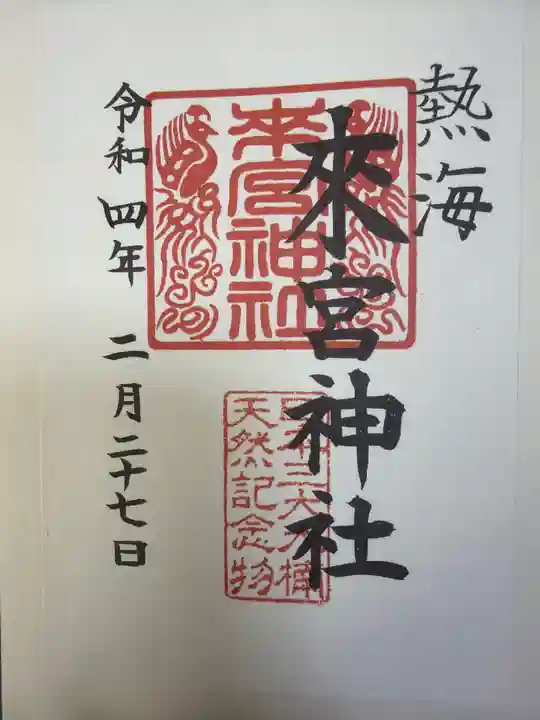 熱海
來宮神社
来宮神社
天然記念物
令和四年 二月二十七日